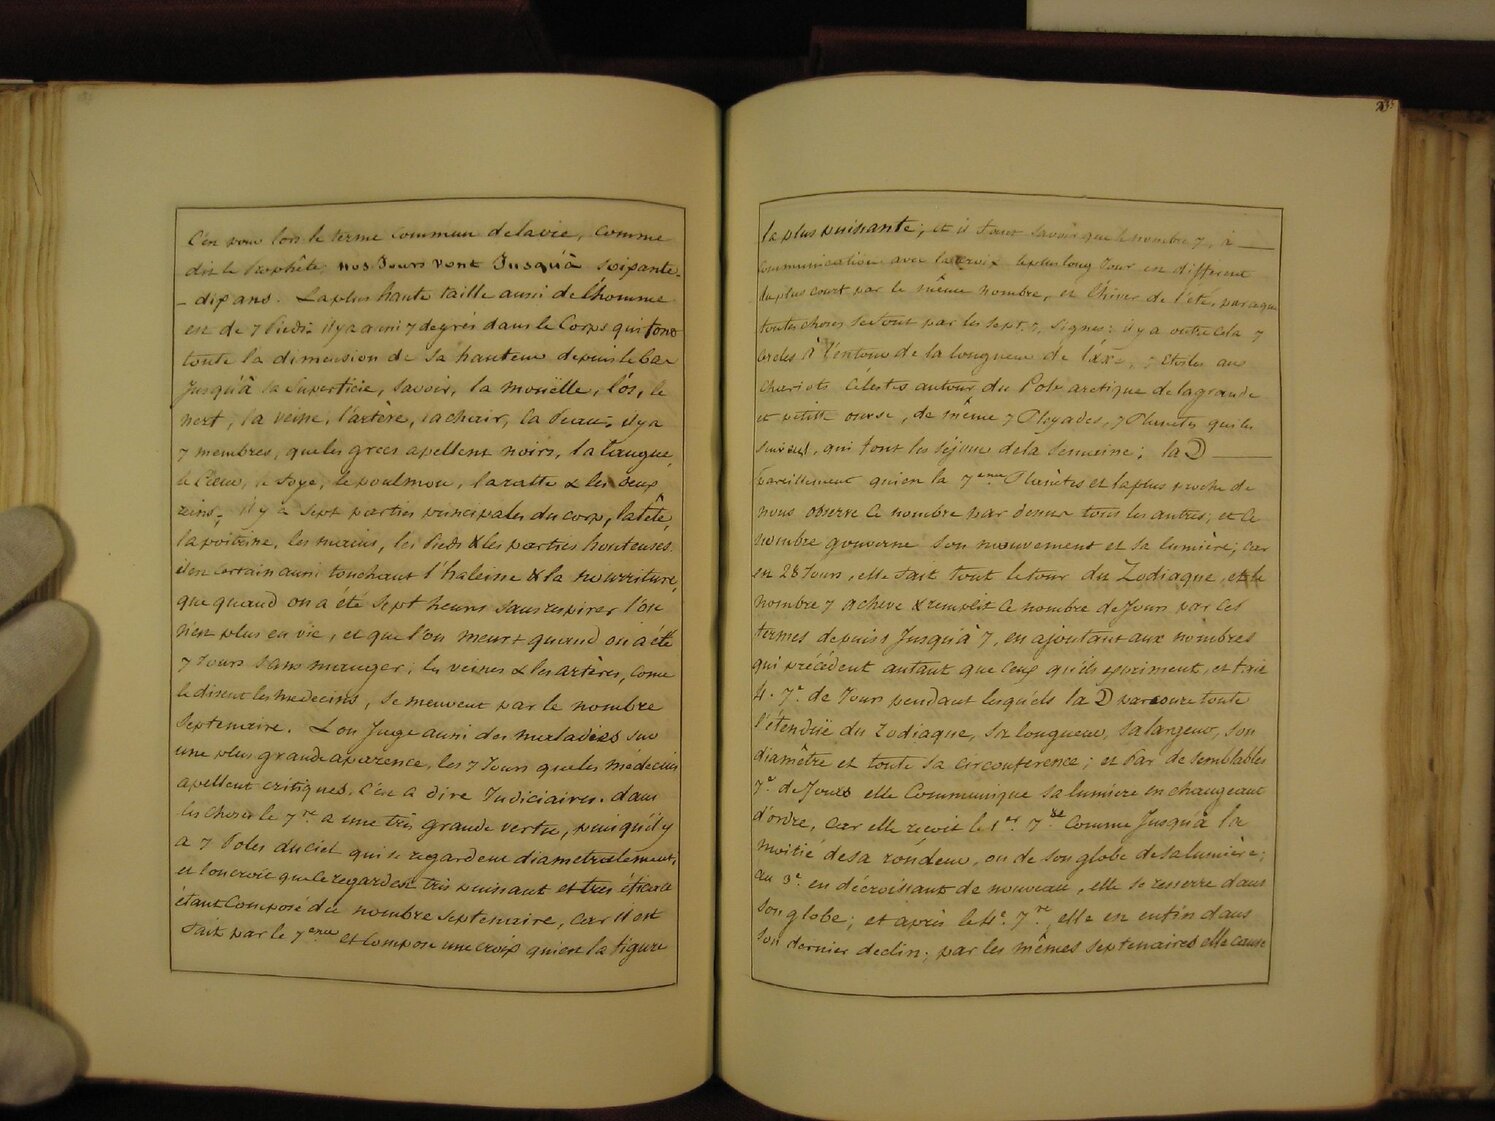 c'en pour lors le terme commun de la vie, comme
dit le Prophête; nos Jours vont Jusqu'à soixante-
-dix ans. La plus haute taille aussi de l'homme
est de 7 Pieds; il y a aussi 7 degrés dans le Corps qui font
toute la dimension de sa hauteur depuis le bas
Jusqu'à sa Superficie, Savoir, la moüelle, l'os, le
nerf, la veine, l'artère, la chair, la Peau; il y a
7 membres, que les grecs apellent noirs, la langue,
le Cœur, le foye, le poulmon, la ratte & les deux
reins; il y a Sept parties principales du corp, la tête,
la poitrine, les mains, les Pieds & les parties honteuses.
il en certain aussi touchant l'haleine & la nourriture,
que quand on a été Sept heures sans respirer l'on
n'est plus en vie, et que l'on meurt quand on a été
7 Jours Sans manger; les veines & les artères, come
le disent les medecins, se meuvent par le nombre
Septenaire. L'on Juge aussi des maladies sur
une plus grande aparence, les 7 Jours que les médecins
apellent critiques, c'en a dire Judiciaires. dans
les choses le 7.re a une très grande vertu, puisqu'il y
a 7 Poles du ciel qui se regardent diametralement,
et l'on croit que ce regard est très puissant et très éficace
étant Composé de ce nombre septenaire, car il est
fait par le 7.eme et Compose une croix qui est la figure
la plus puissante; et il faut savoir que le nombre 7, a
communication avec la croix le plus long Jour en different
du plus court par le même nombre, et l'hiver de l'été, parceque
toutes choses se font par les sept, 7, signes: il y a outre cela 7
Cercles à l'entour de la longueur de l'axe, 7 Etoiles aux
Chariots Célestes autour du Pole arctique de la grande
et petitte ourse, de même 7 Pleyades, 7 Planetes que les
suivent, qui font les Séjour de la Semaine; la ☽
pareillement qui en la 7.eme Planètes et la plus proche de
nous observe Ce nombre par dessus tous les autres; et Ce
nombre gouverne son mouvement et sa lumière; car
en 28 Jours, elle fait tout le tour du Zodiaque, et le
nombre 7 acheve & remplit Ce nombre de Jours par Ces
termes depuis 1 Jusqu'à 7, en ajoutant aux nombres
qui précédent autant que ceux qu'ils expriment, et fait
4. 7.e de Jours pendant lesquels la ☽ parcoure toute
l'étendüe du Zodiaque, sa longueur, sa largeur, son
diamêtre et toute sa circonference; et Par de semblables
7.e de Jours elle Communique sa lumiere en changeant
d'ordre, Car elle reçoit le 1.er 7.re Comme Jusqu'à la
moitié de sa rondeur, ou de son globe de sa lumière;
au 3.e en décroissant de nouveau, elle se resserre dans
son globe; et après le 4.e 7.re, elle en enfin dans
son dernier declin; par les mêmes septenaires elle cause